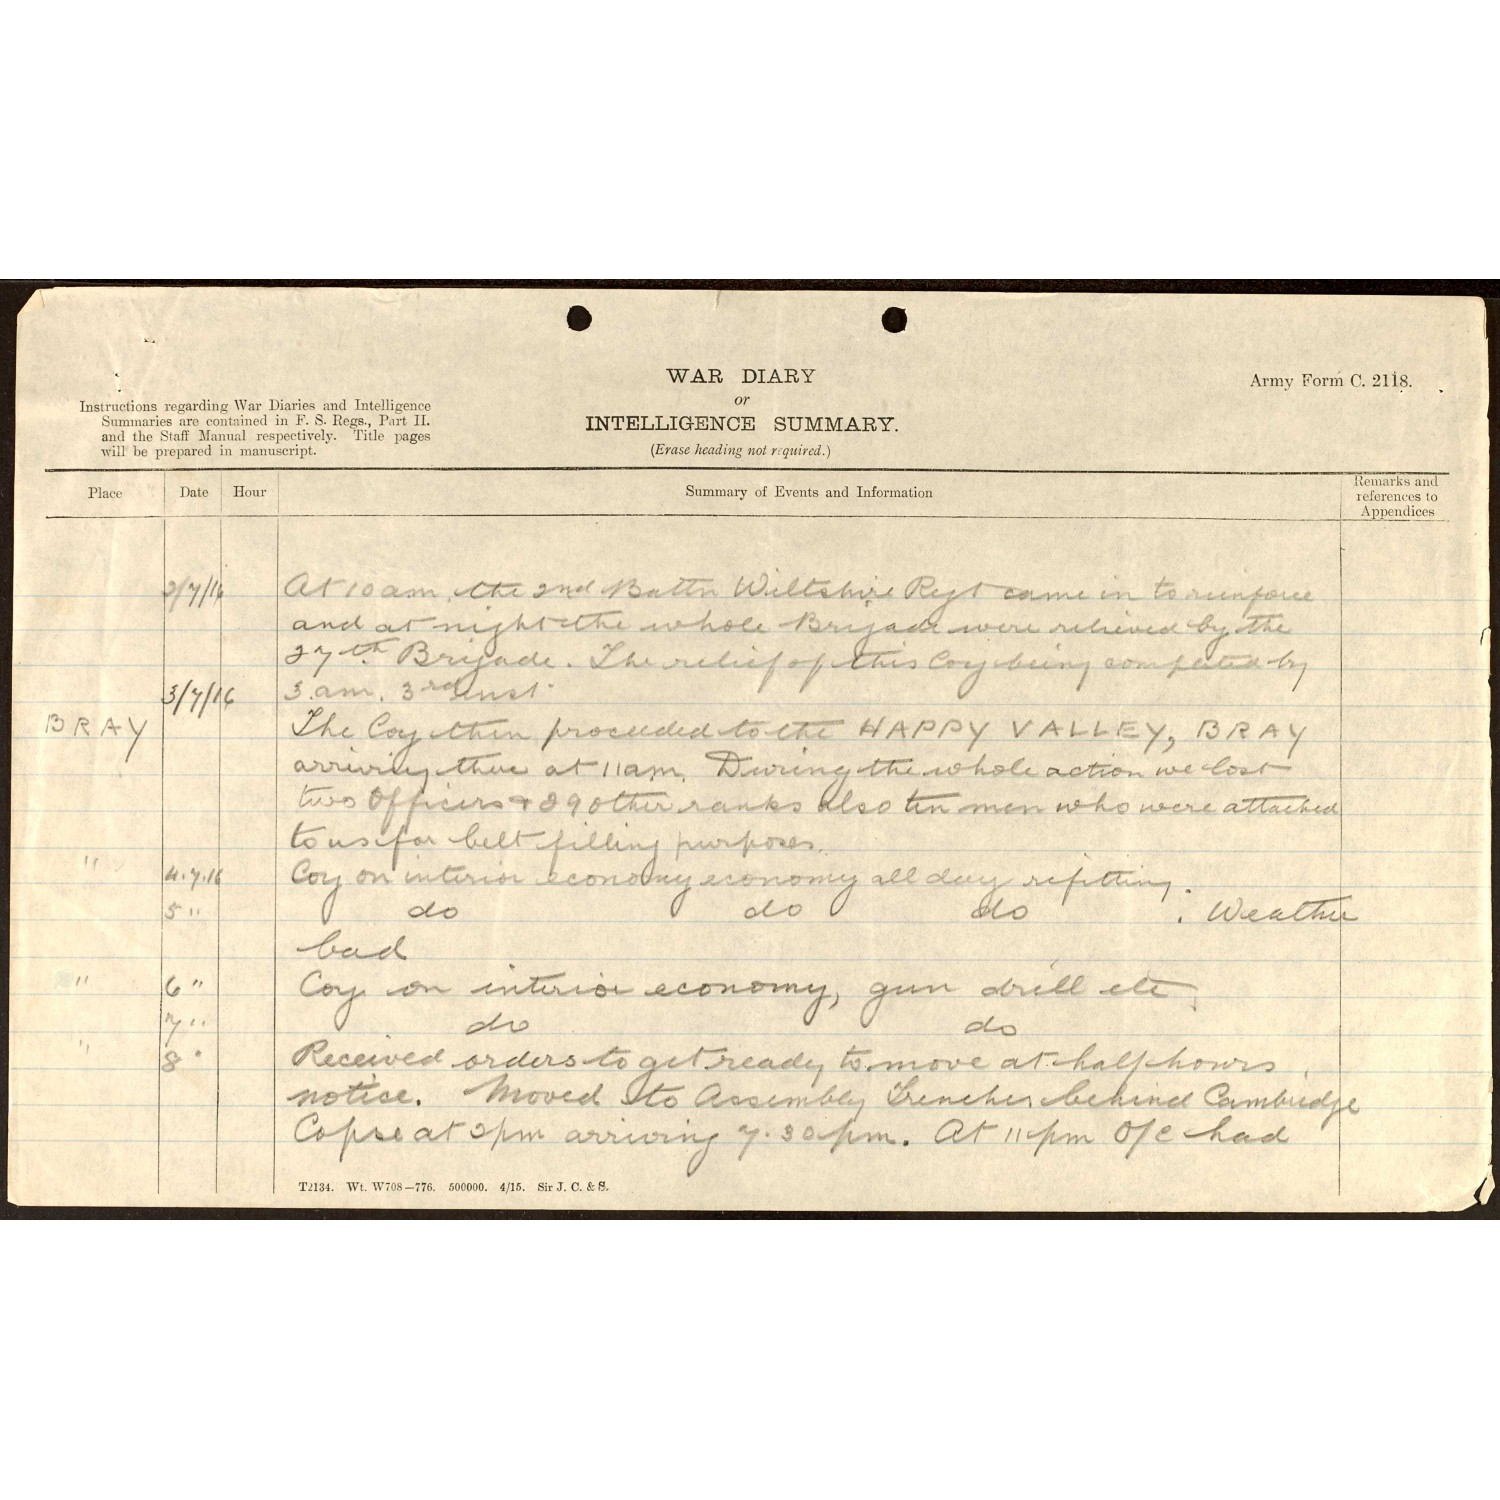 WAR DIARY
or
INTELLIGENCE SUMMARY.
(Erase heading not required.)
Army Form C. 2118.
Instructions regarding War Diaries and Intelligence
Summaries are contained in F. S. Regs., Part II.
and the Staff Manual respectively. Title pages
will be prepared in manuscript.
Place Date Hour Summary of Events and Information Remarks and references to Appendices
2/7/16 At 10 am. the 2nd Battn Wiltshire Regt came in to reinforce
and at night the whole Brigade were relieved by the
27th Brigade. The relief of this Coy being completed by
3/7/16 3. am. 3rd inst.
BRAY The Coy then proceeded to the HAPPY VALLEY, BRAY
arriving there at 11 am. During the whole action we lost
two Officers + 29 other ranks also ten men who were attached
to us for belt filling purposes.
" 4.7.16 Coy on interior economy economy all day refitting.
5 " do do do . Weather
bad
" 6 " Coy on interior economy, gun drill etc.
7 " do do
" 8 " Received orders to get ready to move at half hours
notice. Moved to Assembly Trenches behind Cambridge
Copse at 2pm arriving 7.30pm. At 11 pm O/C had
T2134. Wt. W708—776. 500000. 4/15. Sir J. C. & S.